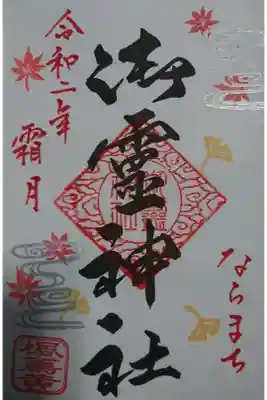 ならまち
御靈神社
令和二年
霜月